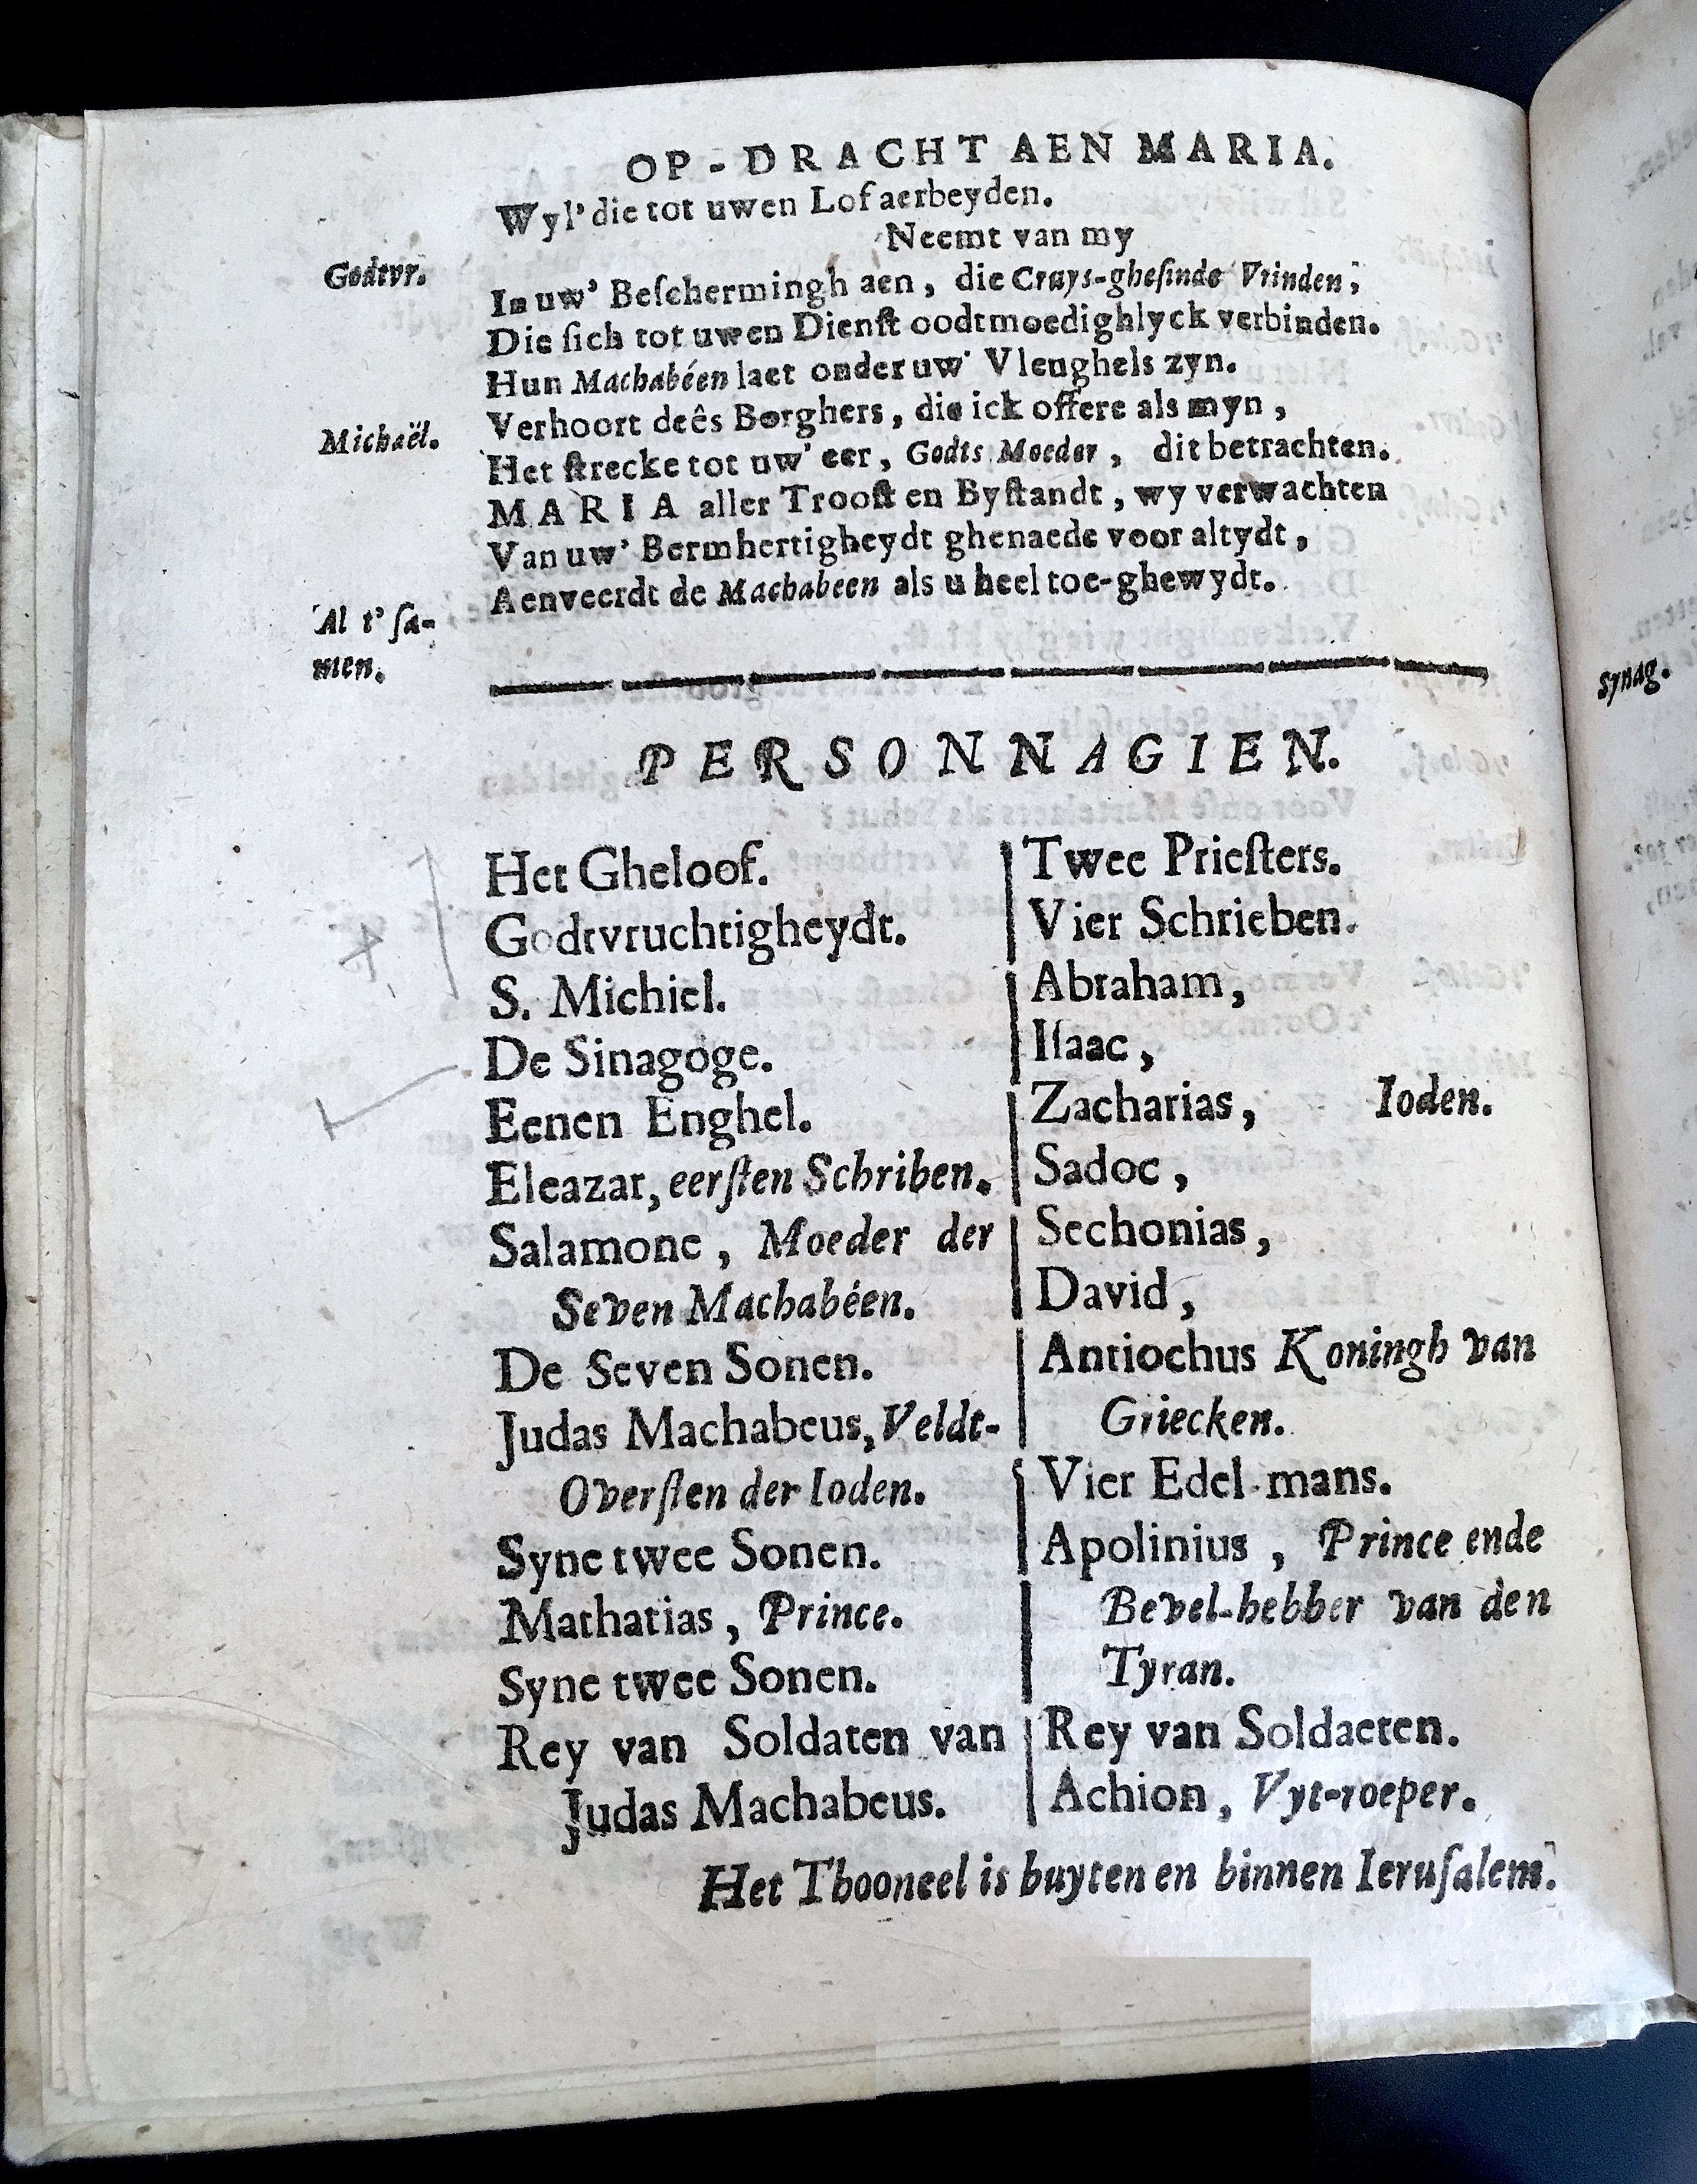 OP-DRACHT AEN MARIA.
Wyl' die tot uwen Lof aerbeyden.
Neemt van my
Godtvr.
In uw' Beſchermingh aen, die Cruys-gheſinde Vrinden;
Die ſich tot uwen Dienſt oodtmoedighlyck verbinden.
Hun Machabéen laet onder uw' Vleughels zyn.
Verhoort deês Borghers, die ick offere als myn,
Michaël.
Het ſtrecke tot uw' eer, Godts Moeder, dit betrachten.
MARIA aller Trooſt en Byſtandt, wy verwachten
Van uw' Bermhertigheydt ghenaede voor altydt,
Aenveerdt de Machabeen als u heel toe-ghewydt.
Al t' ſa-
men.
PERSONNAGIEN.
Het Gheloof.
Godtvruchtigheydt.
S. Michiel.
De Sinagoge.
Eenen Enghel.
Eleazar, eerſten Schriben.
Salamone, Moeder der
Seven Machabéen.
De Seven Sonen.
Judas Machabeus, Veldt-
Overſten der Ioden.
Syne twee Sonen.
Mathatias, Prince.
Syne twee Sonen.
Rey van Soldaten van
Judas Machabeus.
Twee Prieſters.
Vier Schrieben.
Abraham,
Iſaac,
Zacharias, Ioden.
Sadoc,
Sechonias,
David,
Antiochus Koningh van
Griecken.
Vier Edel-mans.
Apolinius, Prince ende
Bevel-hebber van den
Tyran.
Rey van Soldaeten.
Achion, Vyt-roeper.
Het Thooneel is buyten en binnen Ieruſalem.
Synag.